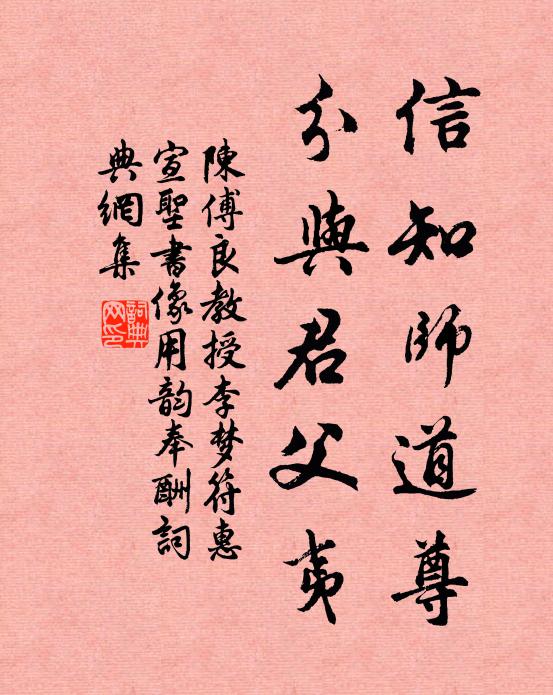 信知師道尊
分與君父夷
陳傅良教授李梦符惠
宣聖書像用韵奉酬詞
典網集
詞典
网印